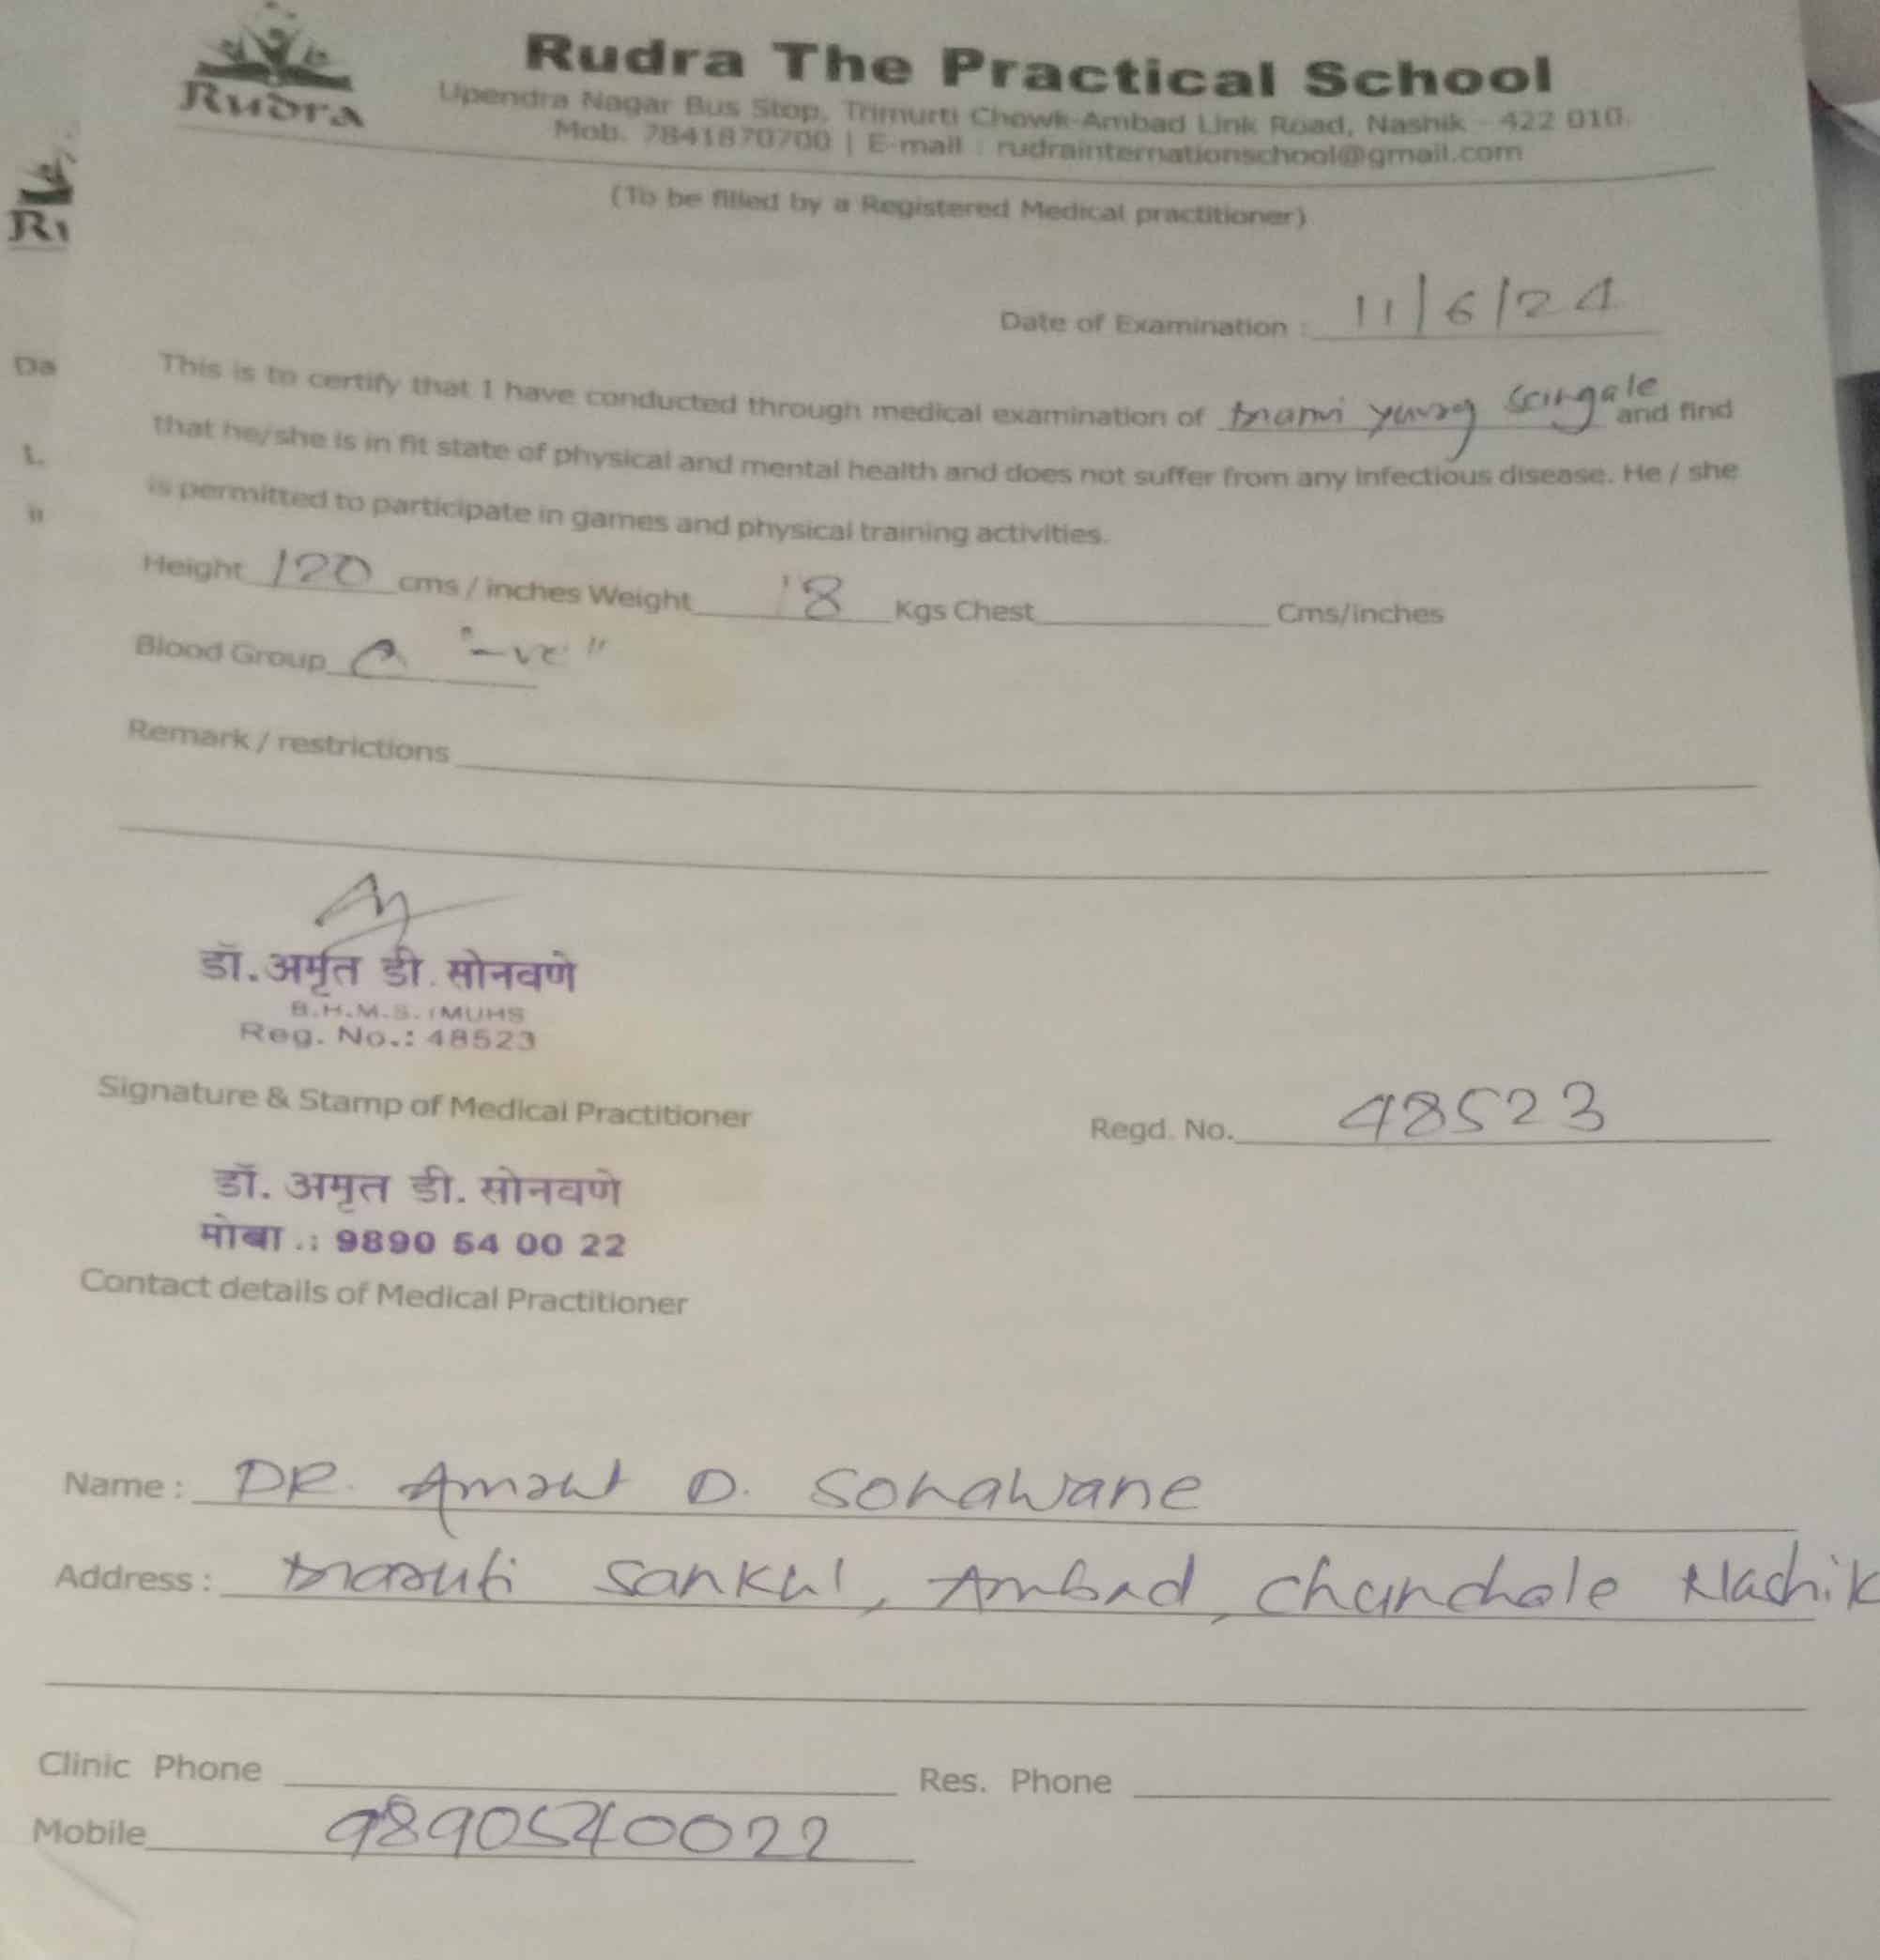 Rudra
Rudra The Practical School
Upendra Nagar Bus Stop, Trimurti Chowk-Ambad Link Road, Nashik - 422 010.
Mob. 7841870700 | E-mail : rudrainternationschool@gmail.com
(To be filled by a Registered Medical practitioner)
Date of Examination : 11/6/24
This is to certify that I have conducted through medical examination of and find
that he/she is in fit state of physical and mental health and does not suffer from any infectious disease. He / she
is permitted to participate in games and physical training activities.
Height 120 cms / inches Weight 18 Kgs Chest Cms/inches
Blood Group "-ve"
Remark / restrictions
डॉ. अमृत डी. सोनवणे
B.H.M.S. (MUHS
Reg. No.: 48523
Signature & Stamp of Medical Practitioner
Regd. No. 48523
डॉ. अमृत डी. सोनवणे
मोबा .: 9890 54 00 22
Contact details of Medical Practitioner
Name : DR. Amrut D. Sonawane
Address : Maruti Sankul, Ambad, Chunchale Nashik
Clinic Phone Res. Phone
Mobile 9890540022
Ri
Da
i.
ii